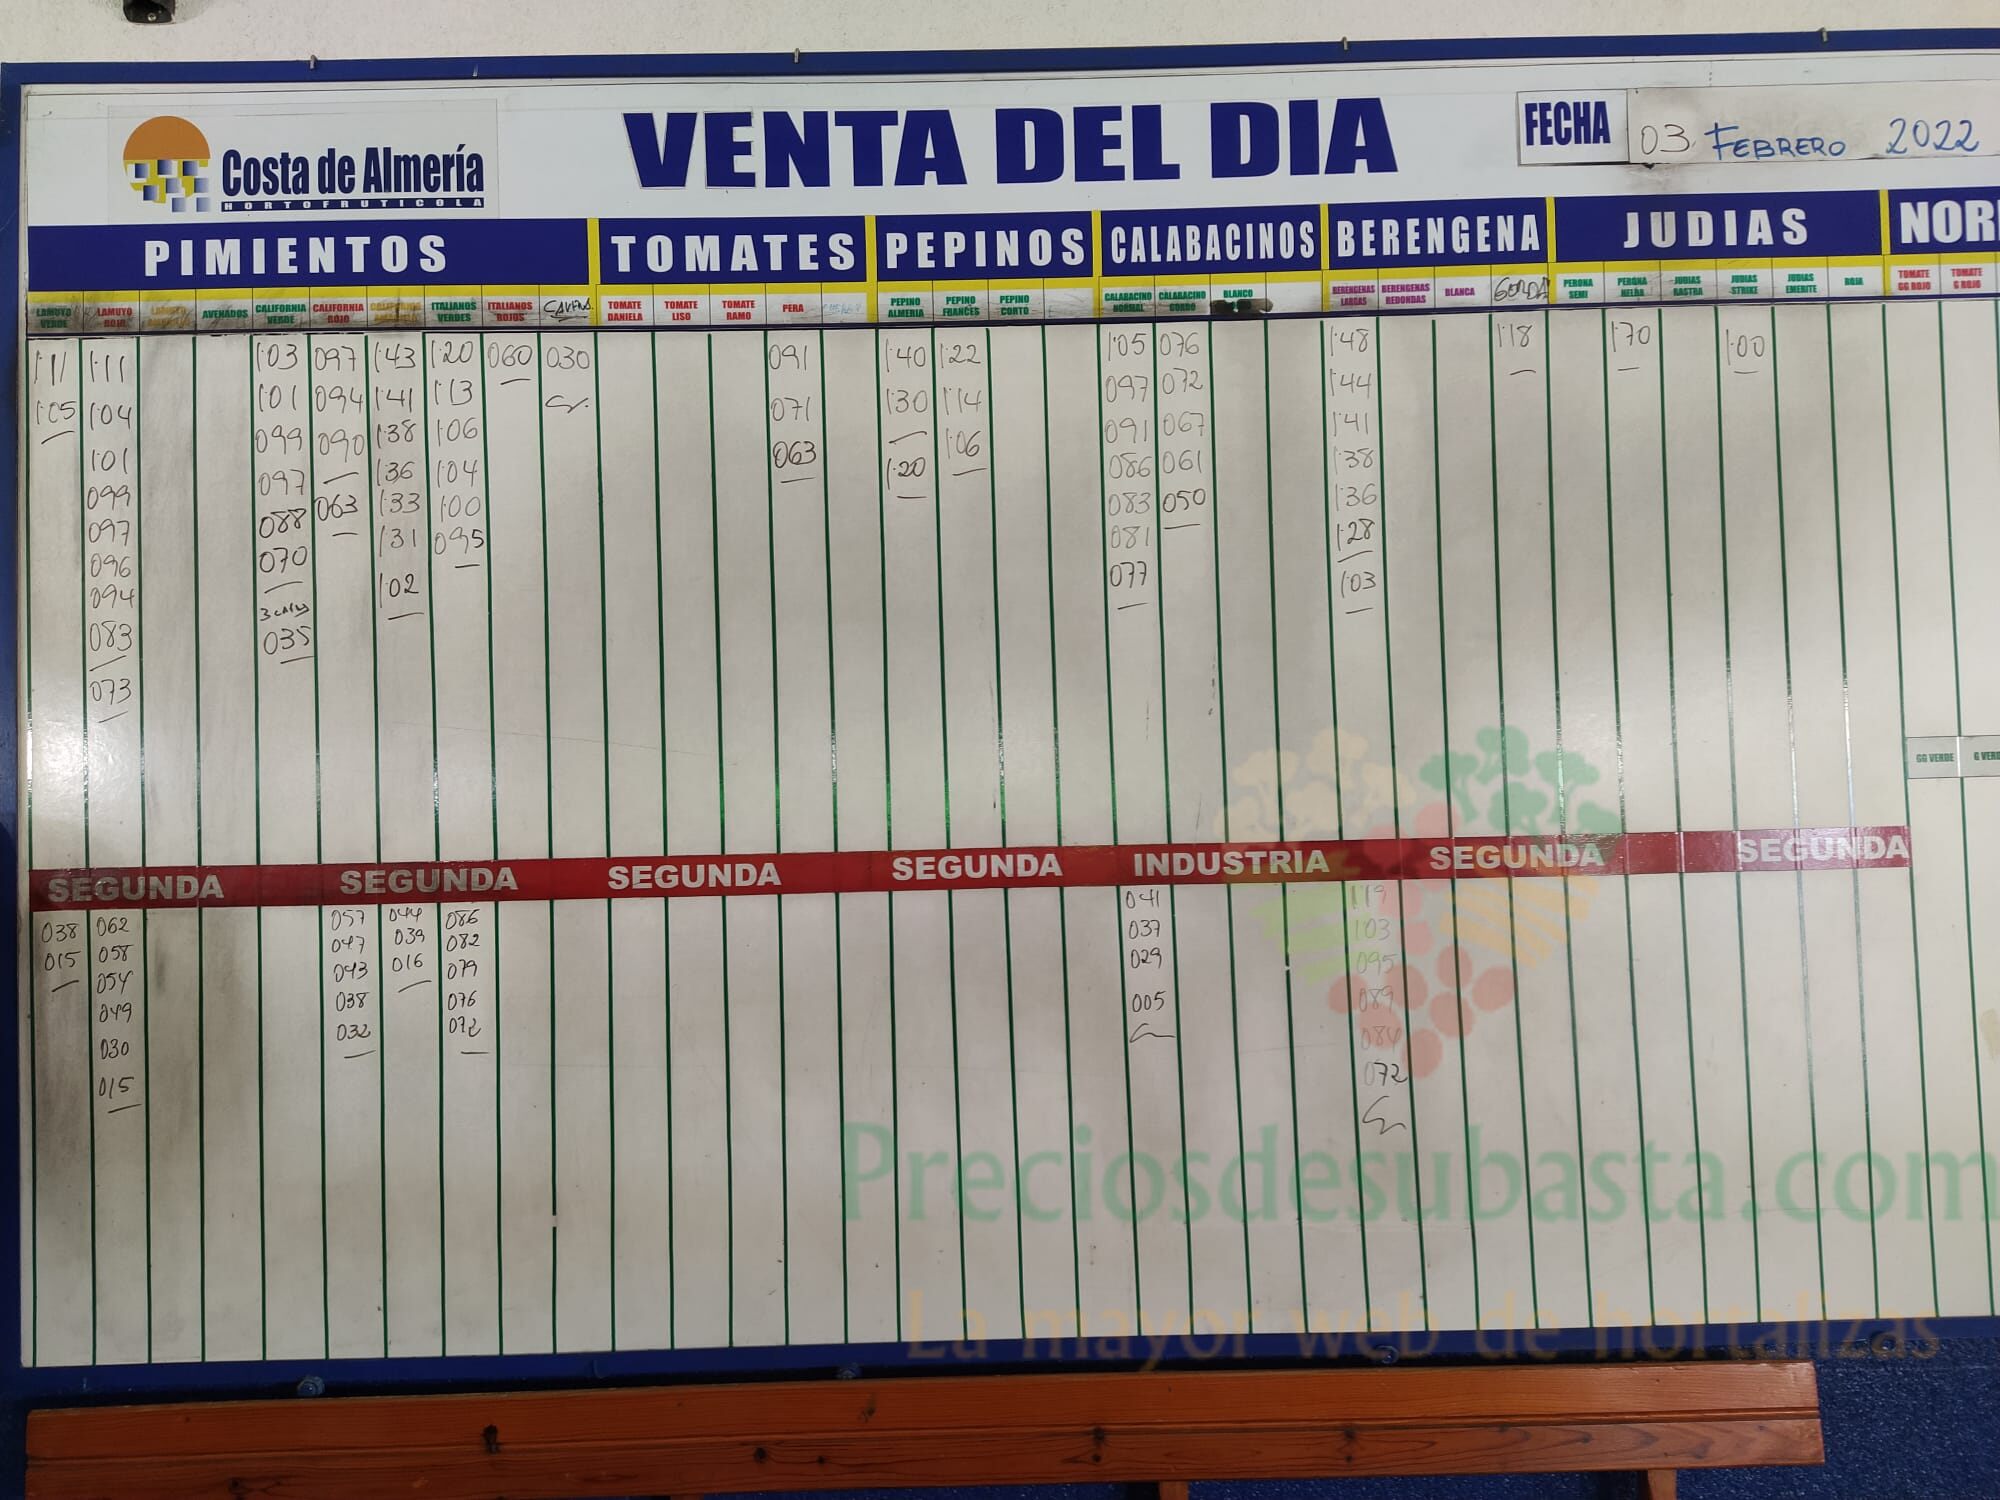 Costa de Almería
HORTOFRUTICOLA
VENTA DEL DIA
FECHA
03 FEBRERO 2022
PIMIENTOS TOMATES PEPINOS CALABACINOS BERENGENA JUDIAS
LAMUYO VERDE LAMUYO ROJO AVENADOS CALIFORNIA VERDE CALIFORNIA ROJO ITALIANOS VERDES ITALIANOS ROJOS TOMATE DANIELA TOMATE LISO TOMATE RAMO PERA PEPINO ALMERIA PEPINO FRANCES PEPINO CORTO CALABACINO NORMAL CALABACINO GORDO BLANCO BERENGENAS LARGAS BERENGENAS REDONDAS BLANCA GORDA PERONA SEMI PERONA HELDA JUDIAS RASTRA JUDIAS STRIKE JUDIAS EMERITE ROJA TOMATE GG ROJO TOMATE G ROJO
1·11 1·11 1·03 097 1·43 1·20 060 030 091 1·40 1·22 1·05 076 1·48 1·18 1·70 1·00
1·05 1·04 1·01 094 1·41 1·13 071 1·30 1·14 097 072 1·44
1·01 099 090 1·38 1·06 063 1·20 1·06 091 067 1·41
099 097 063 1·36 1·04 086 061 1·38
097 088 1·33 1·00 083 050 1·36
096 070 1·31 095 081 1·28
094 1·02 077 1·03
083 035
073
GG VERDE
SEGUNDA SEGUNDA SEGUNDA SEGUNDA INDUSTRIA SEGUNDA SEGUNDA
038 062 057 044 086 041 1·19
015 058 047 039 082 037 1·03
054 043 016 079 029 095
049 038 076 005 089
030 032 072 084
015 072
Preciosdesubasta.com
La mayor web de hortalizas